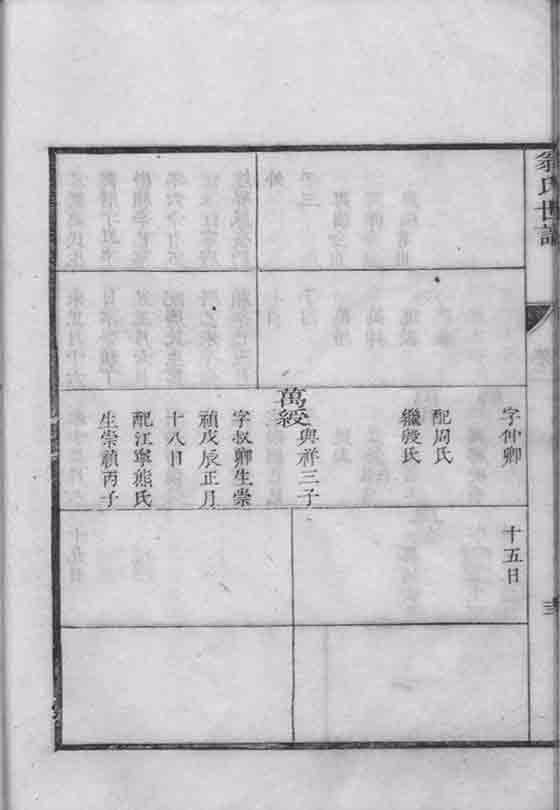 翁氏世譜
字仲卿
配周氏
繼殷氏
萬綬
與祥三子
字叔卿生崇
禎戊辰正月
十八日
配江寧熊氏
生崇禎丙子
十五日